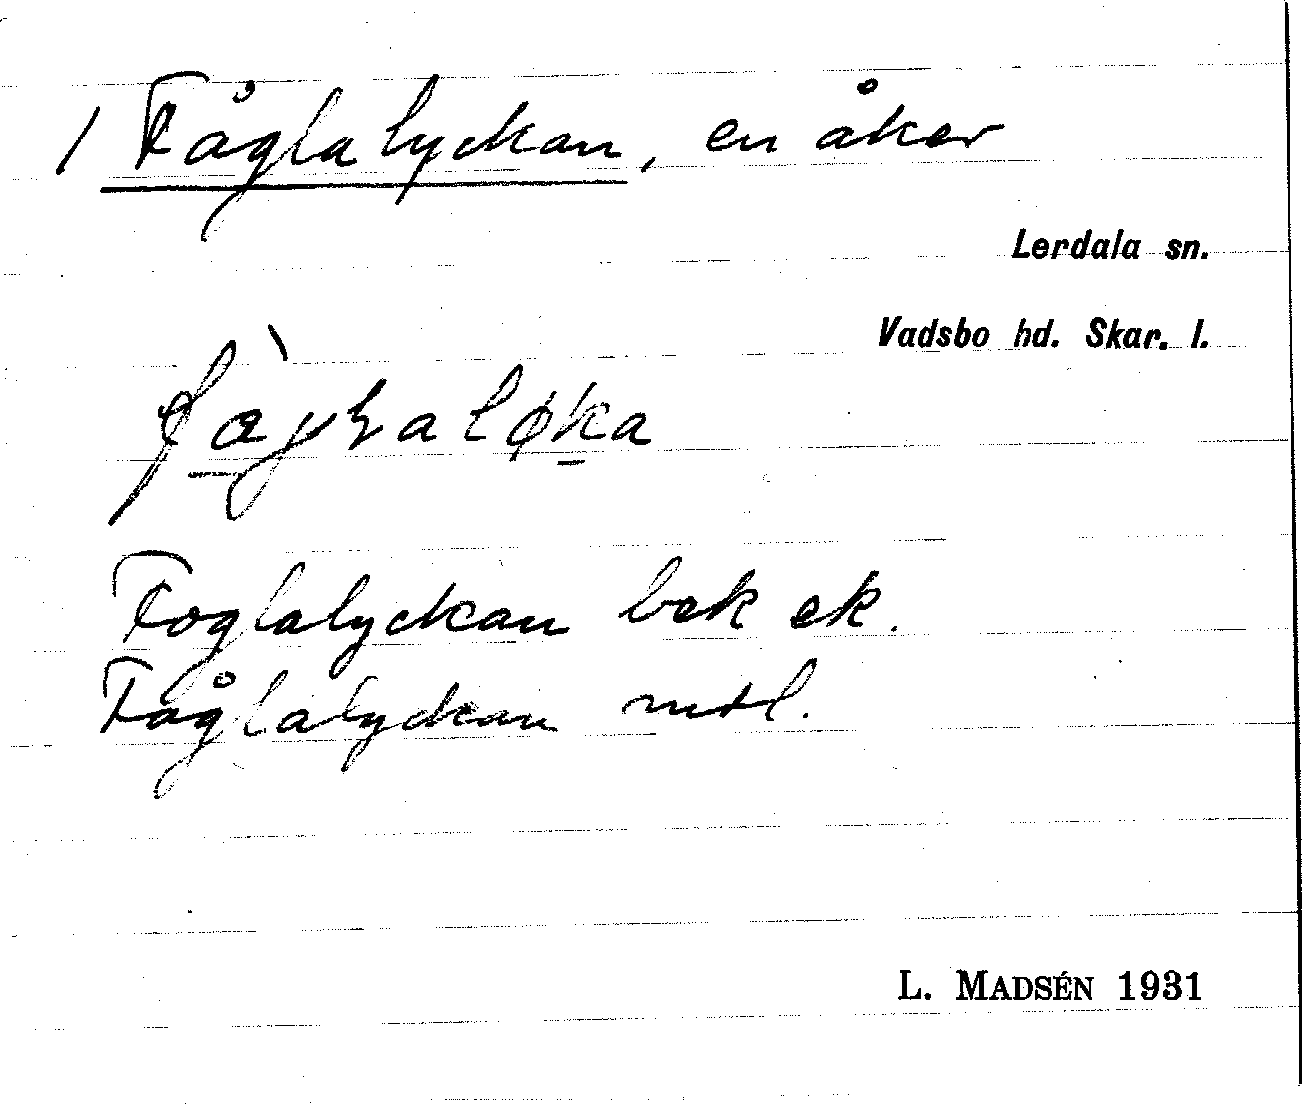 / Fåglalyckan, en åker
Lerdala sn.
Vadsbo hd. Skar. l.
Foglalyckan bek ek.
Fåglalyckan mtl.
L. MADSÉN 1931